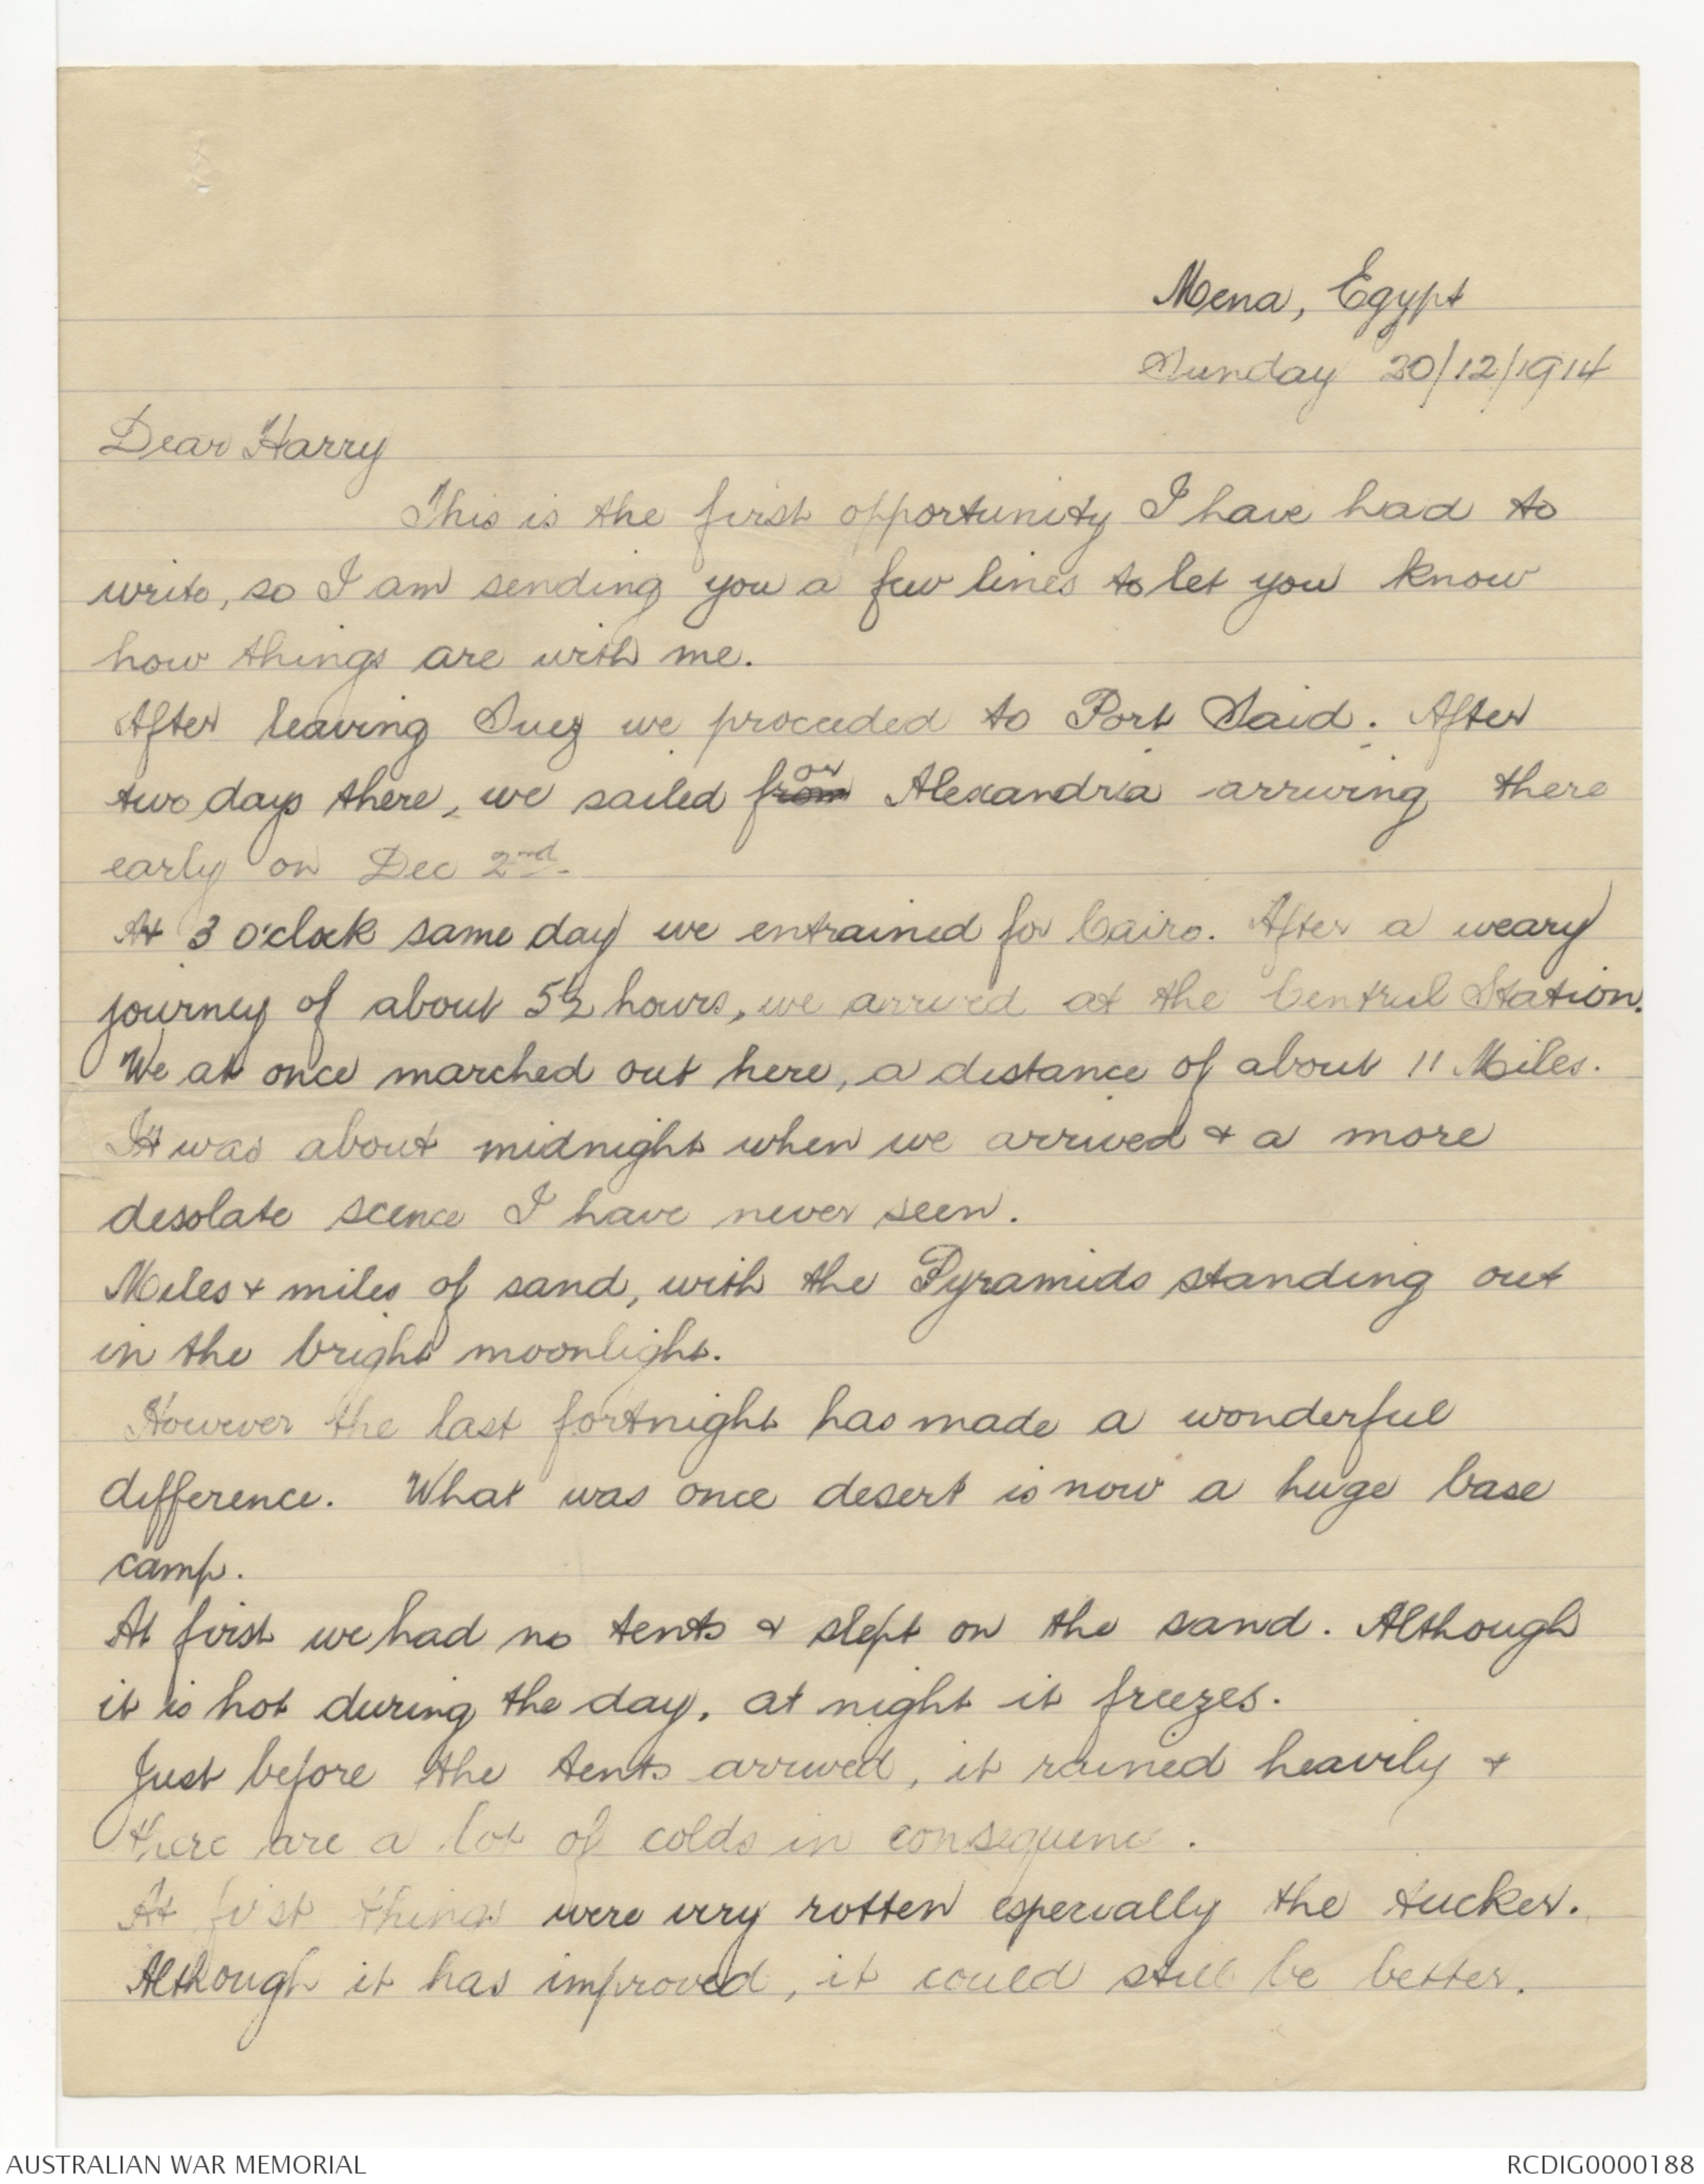 Mena, Egypt
Sunday 20/12/1914
Dear Harry
This is the first opportunity I have had to
write, so I am sending you a few lines to let you know
how things are with me.
After leaving Suez we proceeded to Port Said. After
two days there, we sailed for Alexandria arriving there
early on Dec 2nd.
At 3 o'clock same day we entrained for Cairo. After a weary
journey of about 5½ hours, we arrived at the Central Station.
We at once marched out here, a distance of about 11 Miles.
It was about midnight when we arrived & a more
desolate scence I have never seen.
Miles & miles of sand, with the Pyramids standing out
in the bright moonlight.
However the last fortnight has made a wonderful
difference. What was once desert is now a huge base
camp.
At first we had no tents & slept on the sand. Although
it is hot during the day, at night it freezes.
Just before the tents arrived, it rained heavily &
there are a lot of colds in consequence.
At first things were very rotten especially the tucker.
Although it has improved, it could still be better.
AUSTRALIAN WAR MEMORIAL
RCDIG0000188